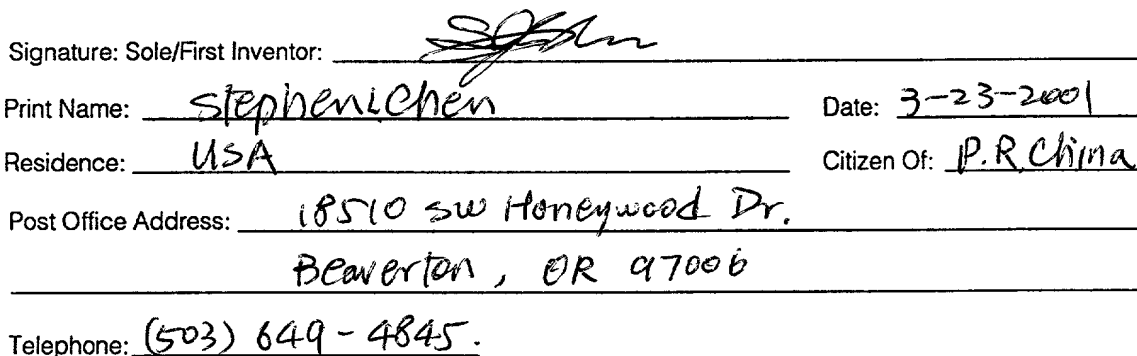 Signature: Sole/First Inventor:
Print Name: Stephen L Chen Date: 3-23-2001
Residence: USA Citizen Of: P.R. China
Post Office Address: 18510 SW Honeywood Dr.
Beaverton, OR 97006
Telephone: (503) 649-4845.